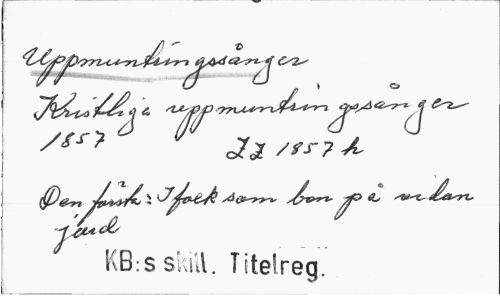 Uppmuntringssånger
Kristliga uppmuntringssånger
1857 ZZ 1857 h
Den första: I folk som bon på vidan
jord
KB:s skill. Titelreg.